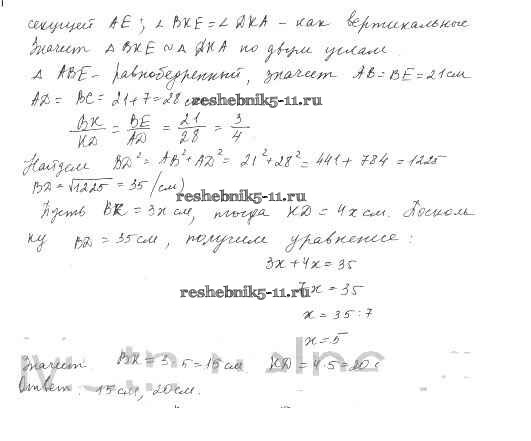 секущей AE; ∠BKE = ∠DKA – как вертикальные
Значит △BKE ~ △DKA по двум углам.
△ABE – равнобедренный, значит AB = BE = 21 см
AD = BC = 21 + 7 = 28 см
reshebnik5-11.ru
BK/KD = BE/AD = 21/28 = 3/4
Найдем BD² = AB² + AD² = 21² + 28² = 441 + 784 = 1225
BD = √1225 = 35 (см)
reshebnik5-11.ru
Пусть BK = 3x см, тогда KD = 4x см. Посколь
ку BD = 35 см, получим уравнение:
3x + 4x = 35
reshebnik5-11.ru
7x = 35
x = 35 : 7
x = 5
Значит BK = 3 · 5 = 15 см KD = 4 · 5 = 20 с
Ответ: 15 см, 20 см.